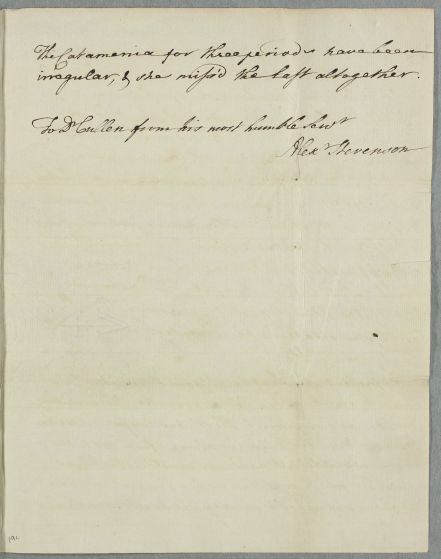 The Catamenia for three periods have been
irregular, & she miss'd the last altogether.
To Dr Cullen from his most humble Servt
Alexr Stevenson